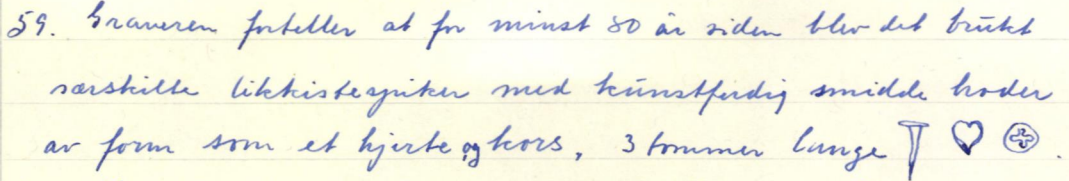 59. Graveren forteller at for minst 80 år siden blev det brukt
særskilte likkistespiker med kunstferdig smidde hoder
av form som et hjerte og kors, 3 tommer lange .